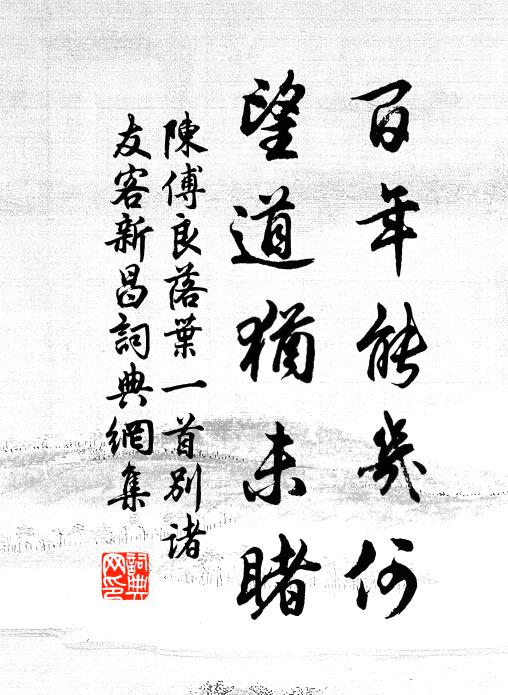 百年能幾何
望道猶未睹
陳傅良落葉一首別諸
友客新昌詞典網集
詞典
网印